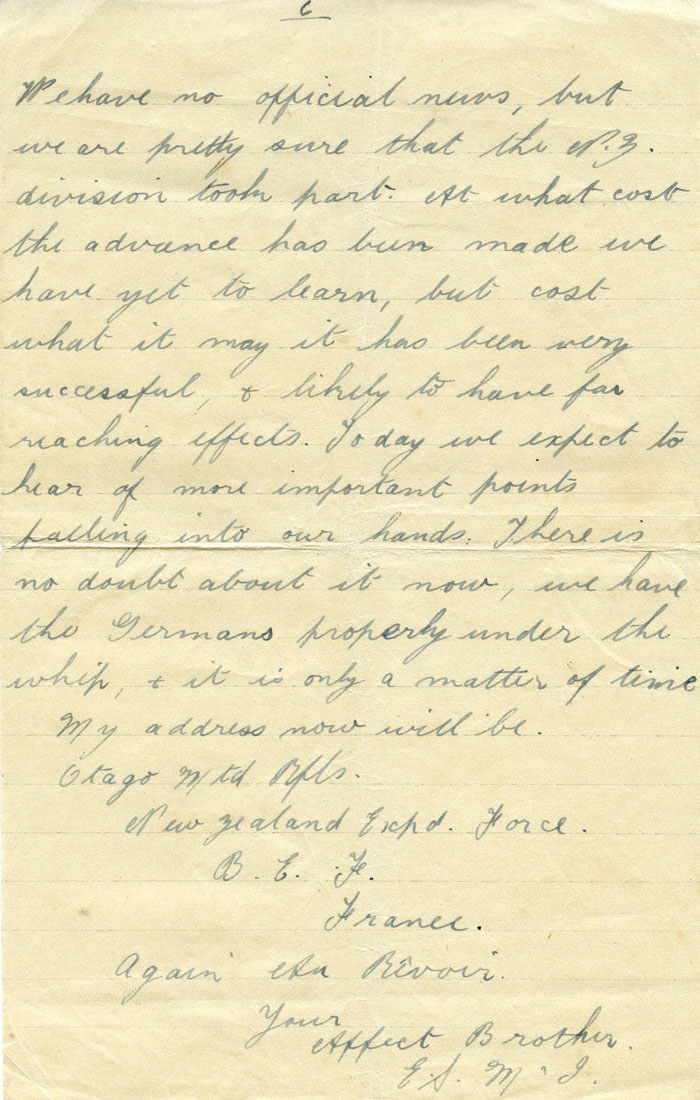 6
We have no official news, but
we are pretty sure that the N.Z.
division took part. At what cost
the advance has been made we
have yet to learn, but cost
what it may it has been very
successful, & likely to have far
reaching effects. Today we expect to
hear of more important points
falling into our hands. There is
no doubt about it now, we have
the Germans properly under the
whip, & it is only a matter of time
My address now will be.
Otago Mtd Rfls.
New Zealand Expd. Force.
B. E. F.
France.
Again Au Revoir.
Your
Affect Brother.
E.S. Mc I.